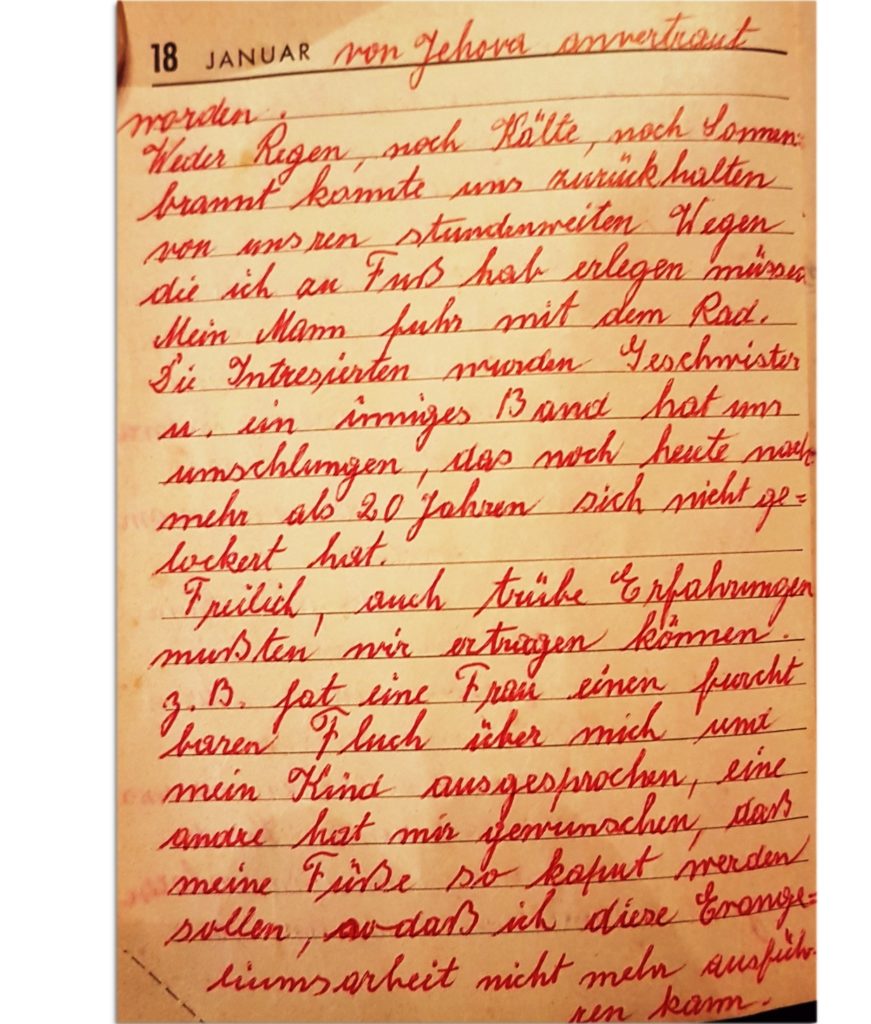 18 JANUAR von Jehova anvertraut
worden.
Weder Regen, noch Kälte, noch Sonnen-
brannt konnte uns zurückhalten
von unsren stundenweiten Wegen
die ich zu Fuß hab erlegen müssen
Mein Mann fuhr mit dem Rad.
Die Intresierten wurden Geschwister
u. ein inniges Band hat uns
umschlungen, das noch heute nach
mehr als 20 Jahren sich nicht ge=
lockert hat.
Freilich, auch trübe Erfahrungen
mußten wir ertragen können.
z.B. hat eine Frau einen furcht
baren Fluch über mich und
mein Kind ausgesprochen, eine
andre hat mir gewunschen, daß
meine Füße so kaput werden
sollen, so daß ich diese Evange=
liumsarbeit nicht mehr ausfüh-
ren kann.